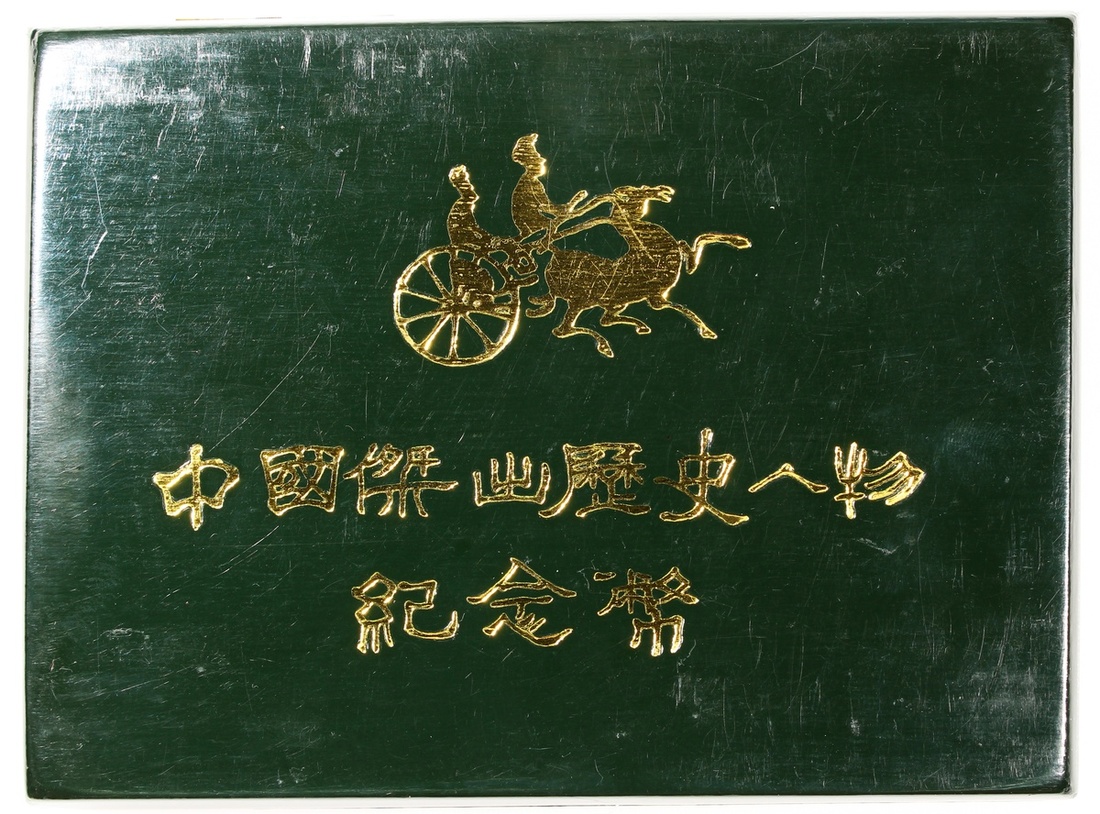 中國傑出歷史人物
紀念幣